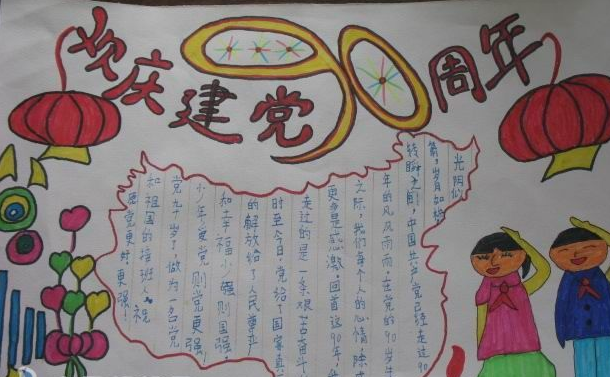 欢庆建党90周年
光阴似
箭，岁月如梭，
转瞬之间，中国共产党已经走过90
年的风风雨雨，在党的90岁生
之际，我们每个人的心情，除
更多是感激，回首这90年，
走过的是一条艰苦奋斗
时至今日，党给了国家真
的解放给了人民尊严
和幸福少强则国强，
少年爱党则党更强，
党九十岁了，做为一名党
和祖国的接班人，祝
愿党更好，更强！